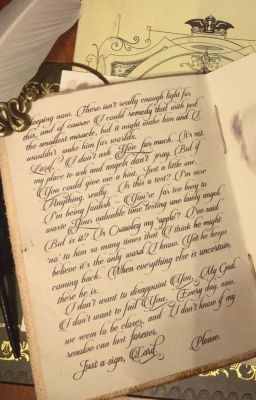 sleeping now. There isn't really enough light for
this, and of course I could remedy that with just
the smallest miracle, but it might wake him and I
wouldn't wake him for worlds.
Lord, I don't ask You for much. It's not
my place to ask and angels don't pray. But if
You could give me a hint. Just a little one.
Anything, really. Is this a test? I'm sure
I'm being foolish – You're far too busy to
waste Your valuable time testing one lowly angel.
But is it? Is Crowley my 'apple'? I've said
'no' to him so many times that I think he might
believe it's the only word I know. Yet he keeps
coming back. When everything else is uncertain,
there he is.
I don't want to disappoint You, My God.
I don't want to fail You. Every day, now,
we seem to be closer, and I don't know if my
resolve can last forever.
Just a sign, Lord. Please.